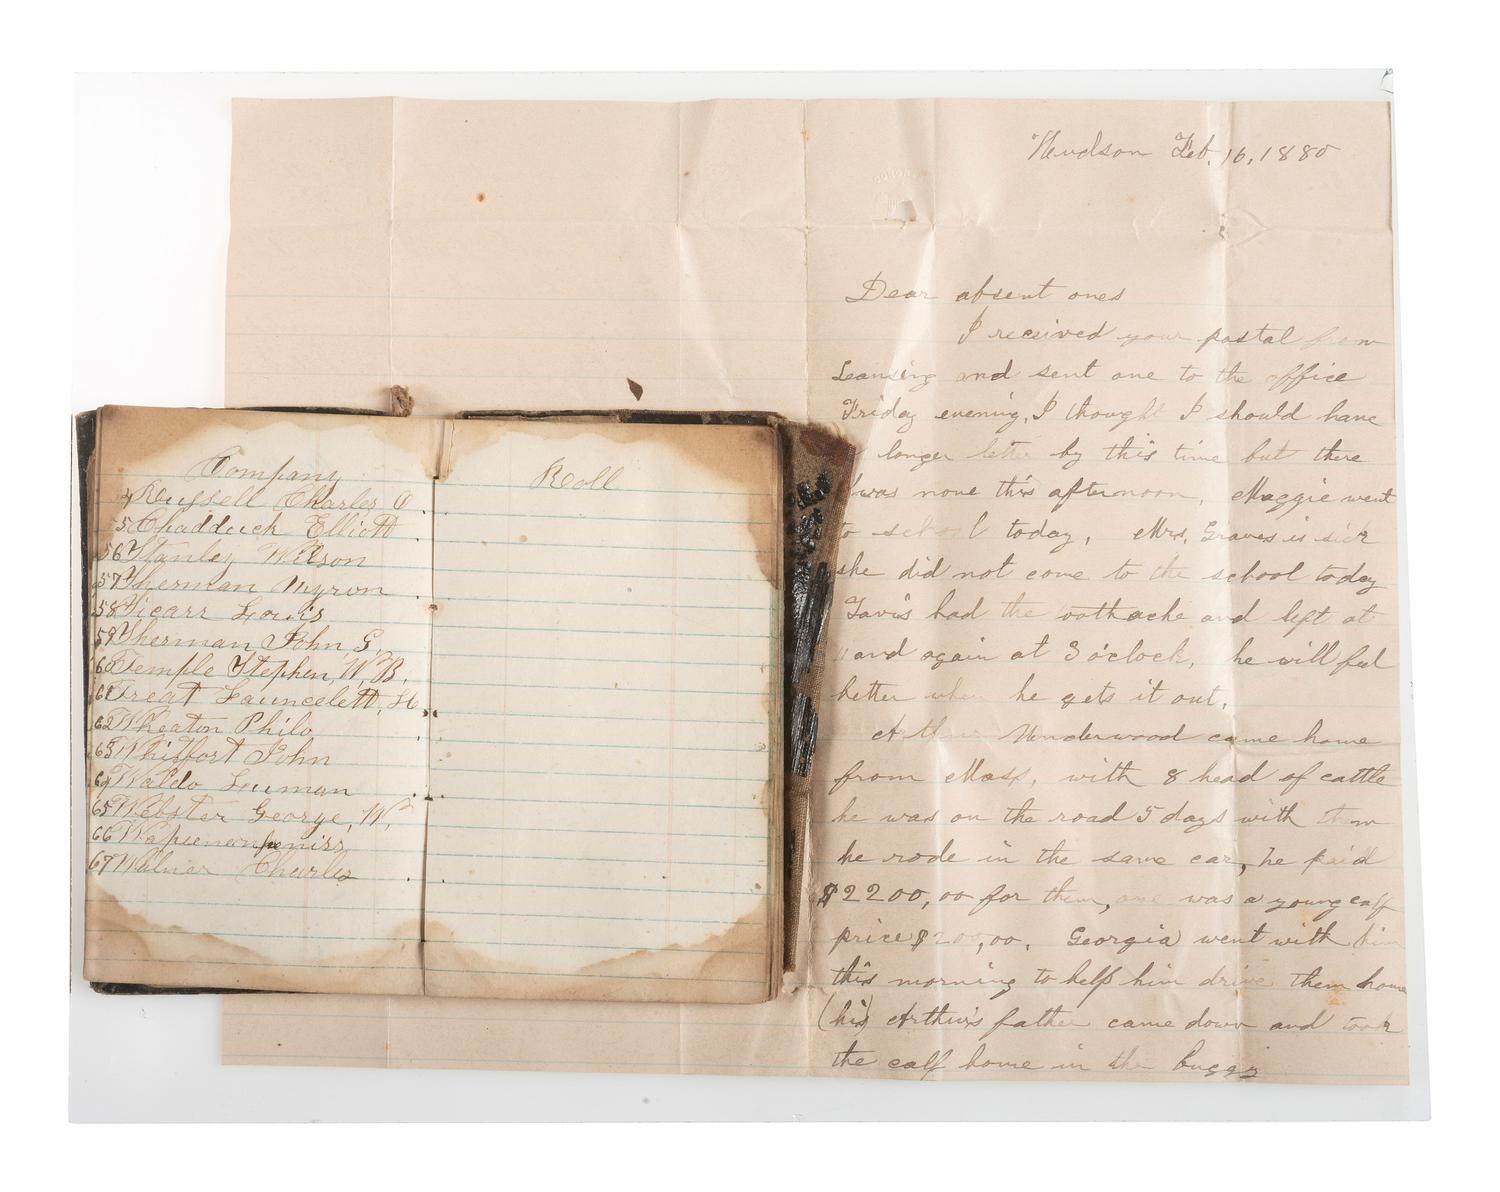 Company Roll
Russell Charles O
Chadduck Elliott
56 Stanley Wilson
57 Sherman Myron
58 Sicarr Louis
59 Sherman John G
60 Temple Stephen, W, B,
61 Treat Launcelott, H
62 Wheaton Philo
63 Whitfort John
64 Waldo Luman
65 Webster George, W,
66
67 Walner Charles
Hudson Feb, 16, 1880
Dear absent ones
I received your postal from
Leansing and sent one to the office
Friday evening, I thought I should have
longer letter by this time but there
was none this afternoon, Maggie went
to school today, Mrs, Graves is sick
she did not come to the school today
Tavis had the toothache and left at
11 and again at 3 o'clock, he will feel
better when he gets it out,
Arthur Underwood came home
from Mass, with 8 head of cattle
he was on the road 5 days with them
he rode in the same car, he paid
$2200,00 for them, one was a young calf
price $200,00. Georgia went with him
this morning to help him drive them home
(his) Arthur's father came down and took
the calf home in the buggy